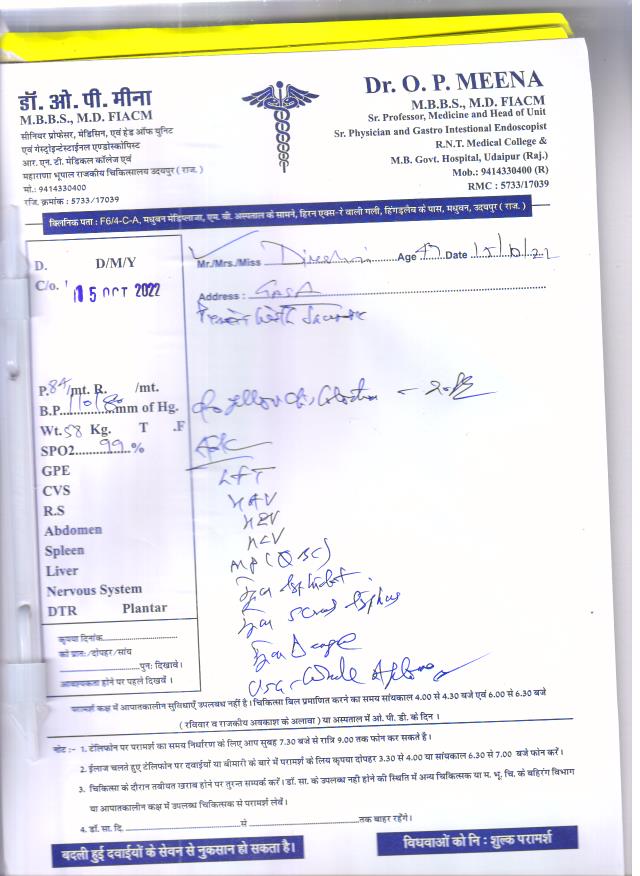 डॉ. ओ. पी. मीना
M.B.B.S., M.D. FIACM
सीनियर प्रोफेसर, मेडिसिन, एवं हेड ऑफ यूनिट
एवं गेस्ट्रोइन्टेस्टाईनल एण्डोस्कोपिस्ट
आर. एन. टी. मेडिकल कॉलेज एवं
महाराणा भूपाल राजकीय चिकित्सालय उदयपुर ( राज. )
मो.: 9414330400
रजि. क्रमांक : 5733/17039
Dr. O. P. MEENA
M.B.B.S., M.D. FIACM
Sr. Professor, Medicine and Head of Unit
Sr. Physician and Gastro Intestional Endoscopist
R.N.T. Medical College &
M.B. Govt. Hospital, Udaipur (Raj.)
Mob.: 9414330400 (R)
RMC : 5733/17039
क्लिनिक पता : F6/4-C-A, मधुबन मेडिप्लाजा, एम. बी. अस्पताल के सामने, हिरन एक्स-रे वाली गली, हिंगड़लेब के पास, मधुबन, उदयपुर ( राज. )
D. D/M/Y
C/o.
15 OCT 2022
Mr./Mrs./Miss Age Date
Address :
P. 84/mt. R. /mt.
B.P. 110/80 mm of Hg.
Wt. 58 Kg. T .F
SPO2 99 %
GPE
CVS
R.S
Abdomen
Spleen
Liver
Nervous System
DTR Plantar
LFT
HAV
HEV
HCV
MP (QBC)
कृपया दिनांक
को प्रातः/दोपहर/सांय
पुनः दिखावें।
आवश्यकता होने पर पहले दिखावें।
परामर्श कक्ष में आपातकालीन सुविधाएँ उपलब्ध नहीं है। चिकित्सा बिल प्रमाणित करने का समय सांयकाल 4.00 से 4.30 बजे एवं 6.00 से 6.30 बजे
( रविवार व राजकीय अवकाश के अलावा ) या अस्पताल में ओ. पी. डी. के दिन।
नोट :- 1. टेलिफोन पर परामर्श का समय निर्धारण के लिए आप सुबह 7.30 बजे से रात्रि 9.00 तक फोन कर सकते है।
2. ईलाज चलते हुए टेलिफोन पर दवाईयों या बीमारी के बारे में परामर्श के लिए कृपया दोपहर 3.30 से 4.00 या सांयकाल 6.30 से 7.00 बजे फोन करें।
3. चिकित्सा के दौरान तबीयत खराब होने पर तुरन्त सम्पर्क करें। डॉ. सा. के उपलब्ध नही होने की स्थिति में अन्य चिकित्सक या म. भू. चि. के बहिरंग विभाग
या आपातकालीन कक्ष में उपलब्ध चिकित्सक से परामर्श लेवें।
4. डॉ. सा. दि. से तक बाहर रहेंगे।
बदली हुई दवाईयों के सेवन से नुकसान हो सकता है।
विधवाओं को नि : शुल्क परामर्श